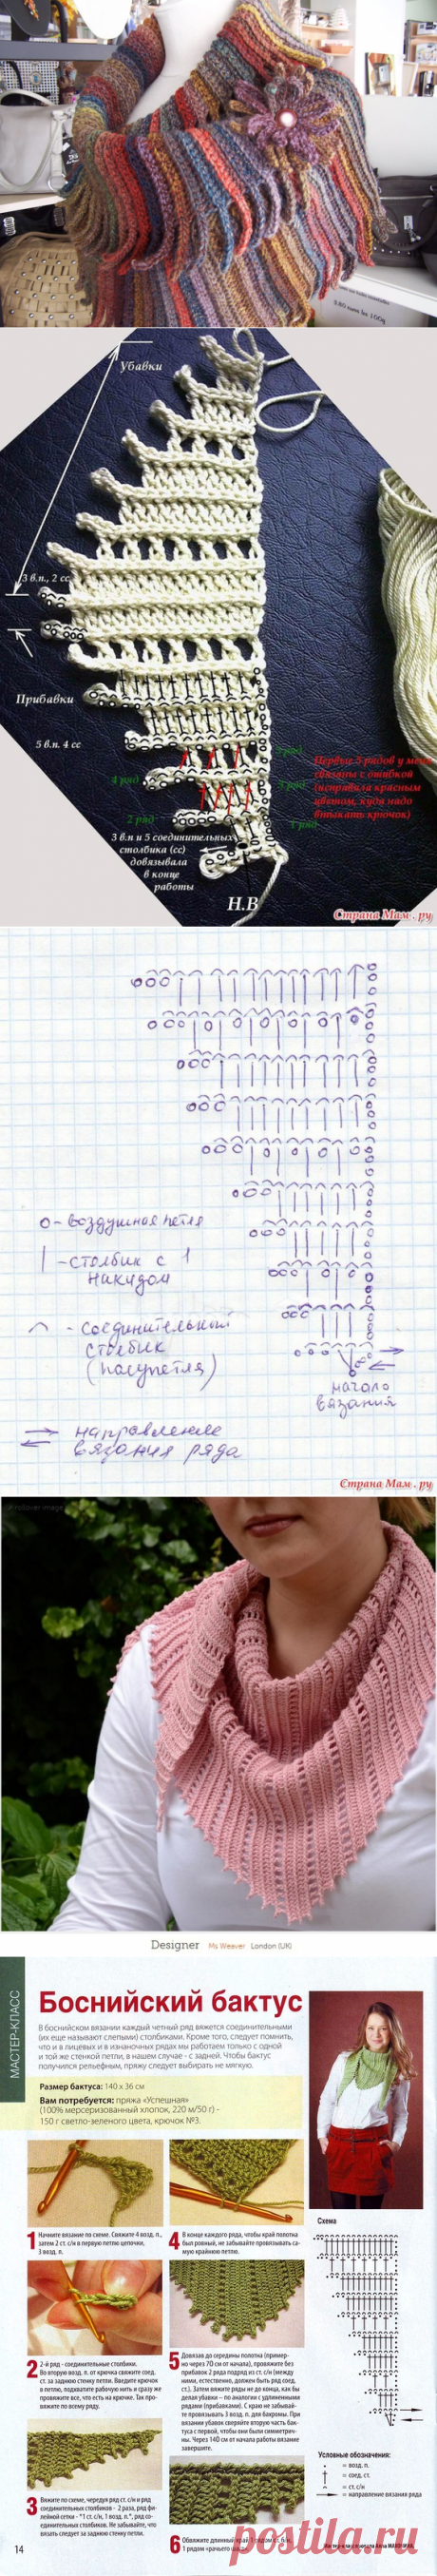 Убавки
3 в.п., 2 сс
Прибавки
5 в.п. 4 сс
Первые 5 рядов у меня
связаны с ошибкой
(исправила красным
цветом, куда надо
втыкать крючок)
4 ряд
3 ряд
2 ряд
1 ряд
3 в.п и 5 соединительных
столбика (сс)
довязывала
в конце
работы
Н.В
Страна Мам.ру
о - воздушная петля
| - столбик с 1
накидом
- соединительный
столбик
(полупетля)
направление
вязания ряда
начало
вязания
Страна Мам.ру
Designer Ms Weaver London (UK)
МАСТЕР-КЛАСС
Боснийский бактус
В боснийском вязании каждый четный ряд вяжется соединительными
(их еще называют слепыми) столбиками. Кроме того, следует помнить,
что и в лицевых и в изнаночных рядах мы работаем только с одной
и той же стенкой петли, в нашем случае - с задней. Чтобы бактус
получился рельефным, пряжу следует выбирать не мягкую.
Размер бактуса: 140 х 36 см
Вам потребуется: пряжа «Успешная»
(100% мерсеризованный хлопок, 220 м/50 г) -
150 г светло-зеленого цвета, крючок №3.
1 Начните вязание по схеме. Свяжите 4 возд. п.,
затем 2 ст. с/н в первую петлю цепочки,
3 возд. п.
2 2-й ряд - соединительные столбики.
Во вторую возд. п. от крючка свяжите соед.
ст. за заднюю стенку петли. Введите крючок
в петлю, подхватите рабочую нить и сразу же
провяжите все, что есть на крючке. Так про-
вяжите по всему ряду.
3 Вяжите по схеме, чередуя ряд ст. с/н и ряд
соединительных столбиков - 2 раза, ряд фи-
лейной сетки - *1 ст. с/н, 1 возд. п.*, ряд со-
единительных столбиков. Не забывайте, что
вязать следует за заднюю стенку петли.
4 В конце каждого ряда, чтобы край полотна
был ровный, не забывайте провязывать са-
мую крайнюю петлю.
5 Довязав до середины полотна (пример-
но через 70 см от начала), провяжите без
прибавок 2 ряда подряд из ст. с/н (между
ними, естественно, должен быть ряд соед.
ст.). Затем вяжите ряды не до конца, как бы
делая убавки - по аналогии с удлиненными
рядами (прибавками). С краю не забывай-
те провязывать 3 возд. п. для бахромы. При
вязании убавок сверяйте вторую часть бак-
туса с первой, чтобы они были симметрич-
ны. Через 140 см от начала работы вязание
завершите.
6 Обвяжите длинный край 1 рядом ст. б/н,
1 рядом «рачьего шага».
Схема
Условные обозначения:
= возд. п.
= соед. ст.
= ст. с/н
= направление вязания ряда
14
postila.ru